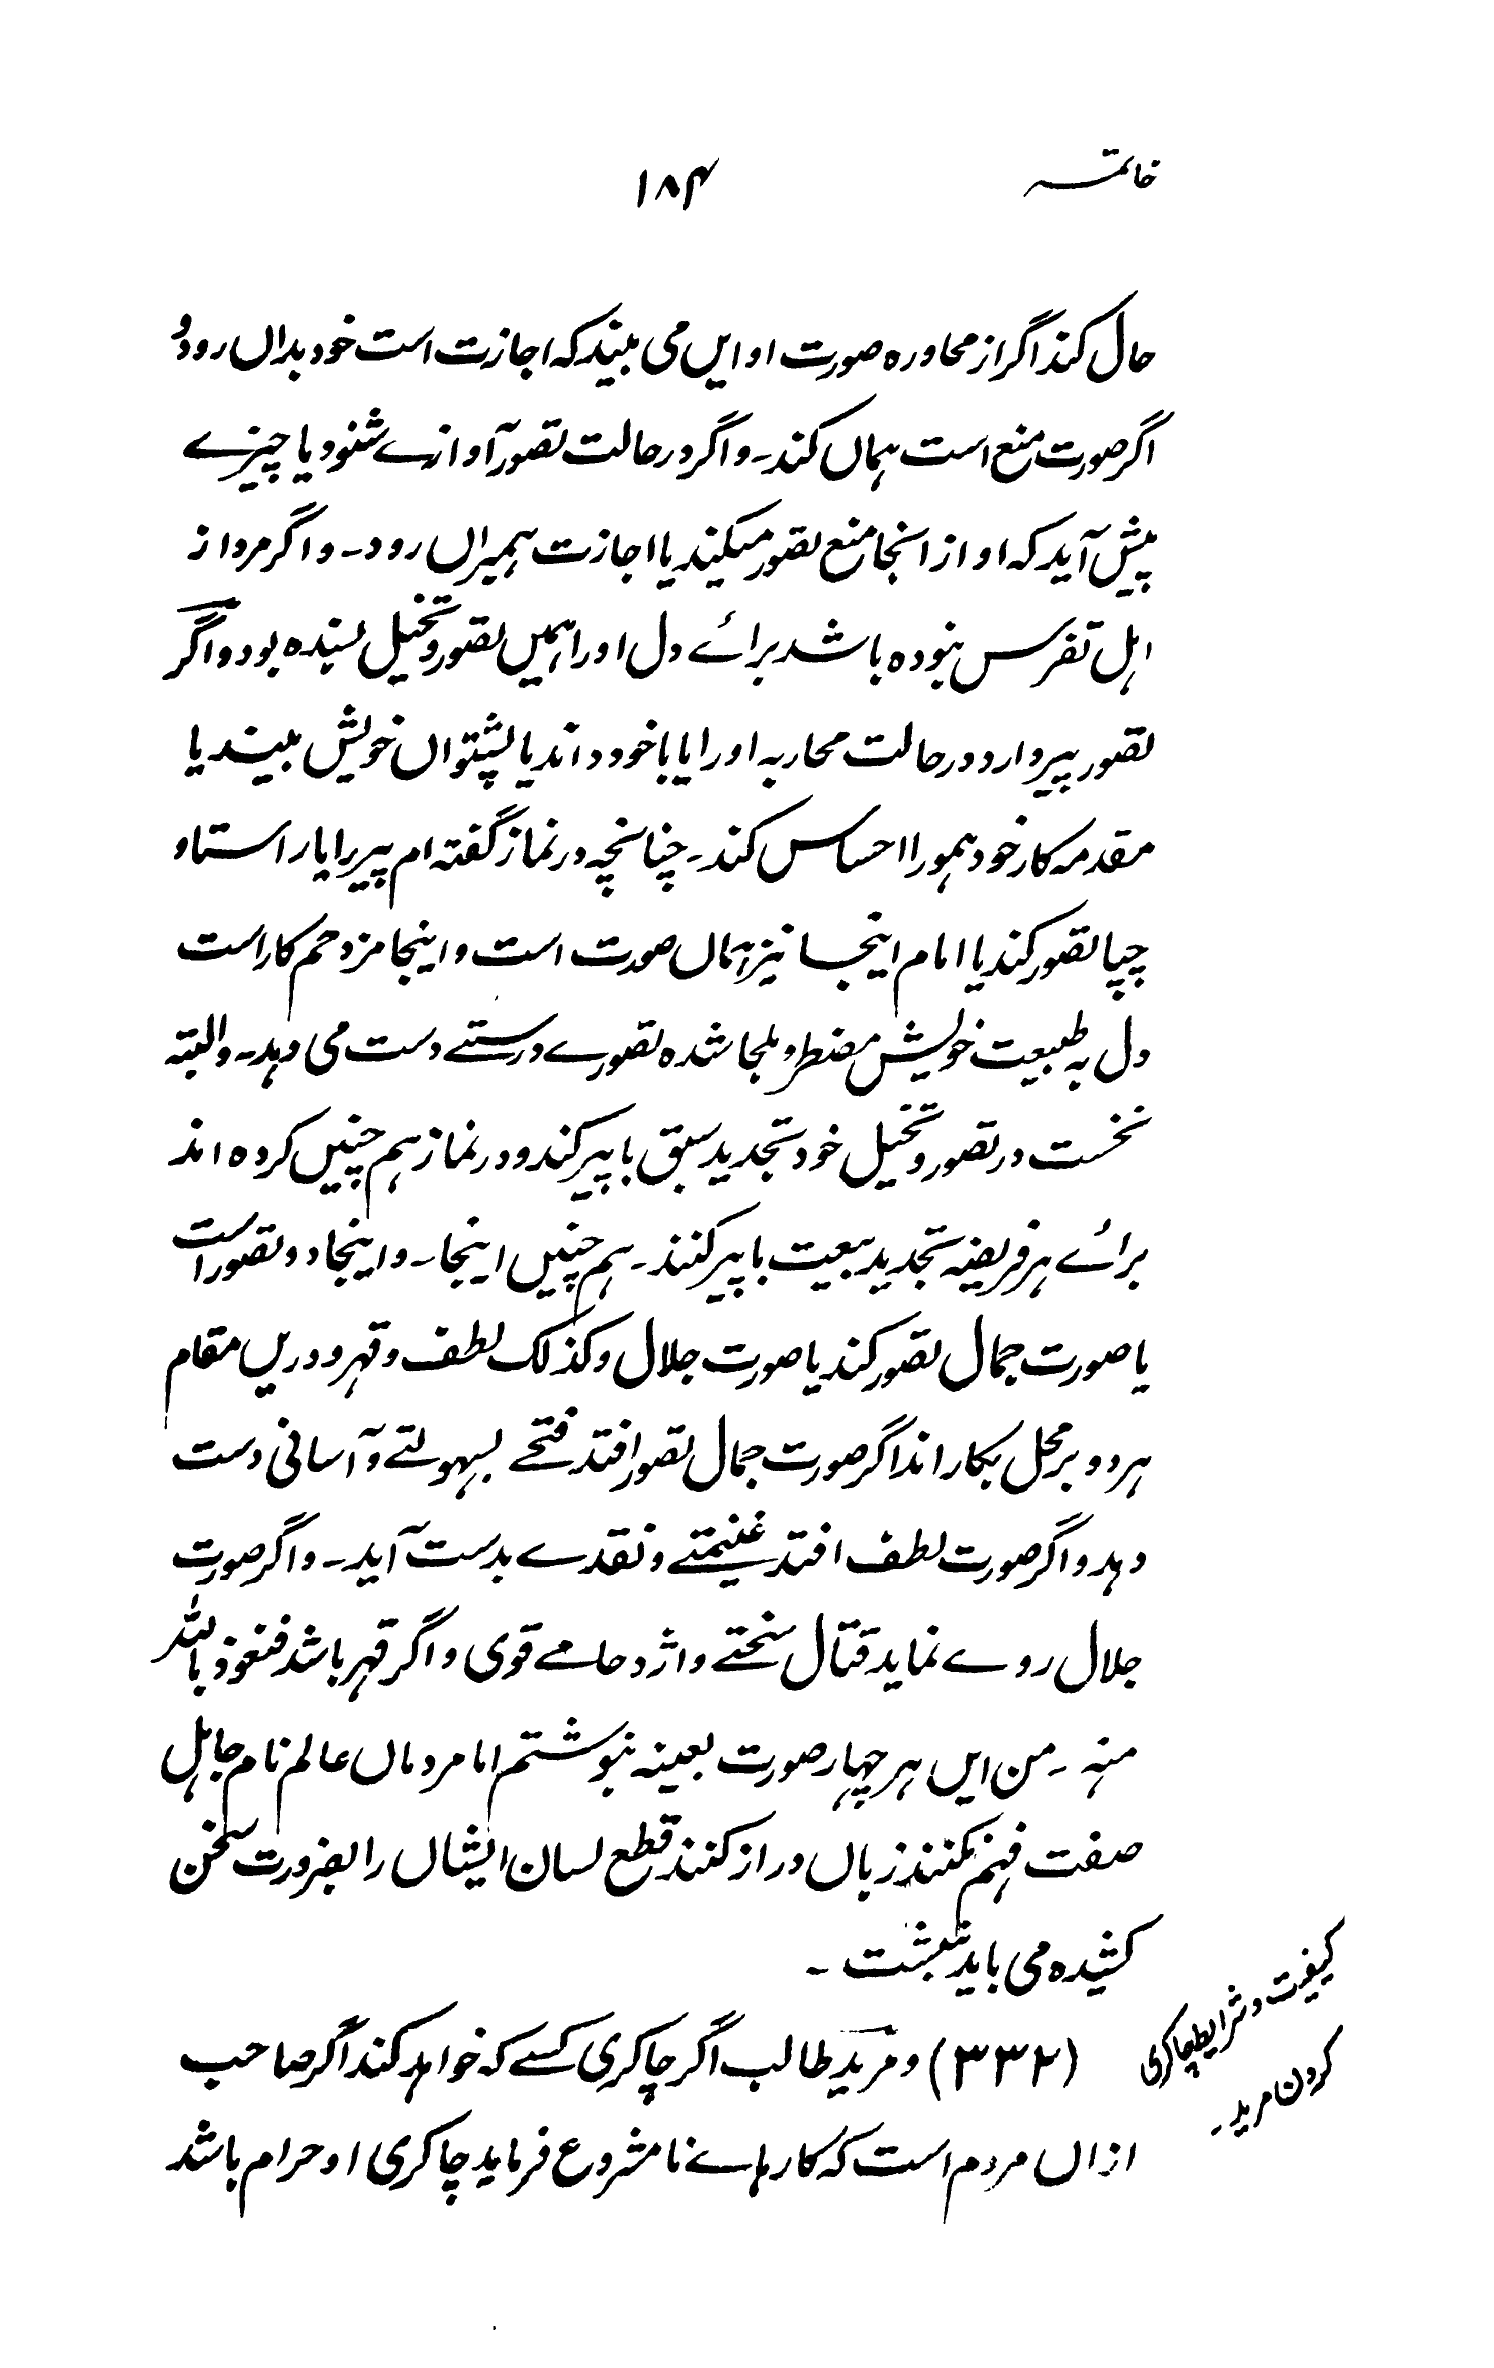 خاتمہ ۱۸۴
حال کند اگر از محاورہ صورت او ایں می بیند کہ اجازت است خود بداں رود و
اگر صورت منع است ہماں کند۔ و اگر در حالت تصور آوازے شنود یا چیزے
پیش آید کہ او از انجا منع تصور میکند یا اجازت ہمبراں رود۔ و اگر مرد از
اہل تفرس نبودہ باشد برائے دل او را ہمیں تصور و تخیل بسندہ بود و اگر
تصور پیر وارد در حالت محاربہ او را یا با خود داند یا پشتواں خویش بیند یا
مقدمہ کار خود ہمو را احساس کند۔ چنانچہ در نماز گفتہ ام پیر را یا راستا و
چپا تصور کند یا امام اینجا نیز ہماں صورت است و اینجا مزدحم کار است
دل بہ طبیعت خویش مضطر و ملجا شدہ تصورے درستے دست می دہد۔ و البتہ
نخست در تصور و تخیل خود تجدید سبق با پیر کند و در نماز ہم چنیں کردہ اند
برائے ہر فریضہ تجدید بیعت با پیر کنند۔ ہم چنیں اینجا۔ و اینجا دو تصور است
یا صورت جمال تصور کند یا صورت جلال و کذلک لطف و قہر و دریں مقام
ہر دو بر محل بکار اند اگر صورت جمال تصور افتد فتحے بسہولتے و آسانی دست
دہد و اگر صورت لطف افتد غنیمتے و نقدے بدست آید۔ و اگر صورت
جلال روے نماید قتال سختے و اژدحامے قوی و اگر قہر باشد فنعوذ باللہ
منہ۔ من ایں ہر چہار صورت بعینہ نبوشتم اما مردماں عالم نام جاہل
صفت فہم نکنند زباں دراز کنند قطع لسان ایشاں را بضرورت سخن
کشیدہ می باید نبشت۔
کیفیت و شرایط چاکری
کردن مرید۔
(۳۳۲) و مرید طالب اگر چاکری کسے کہ خواہد کند اگر صاحب
ازاں مردم است کہ کارہاے نامشروع فرماید چاکری او حرام باشد